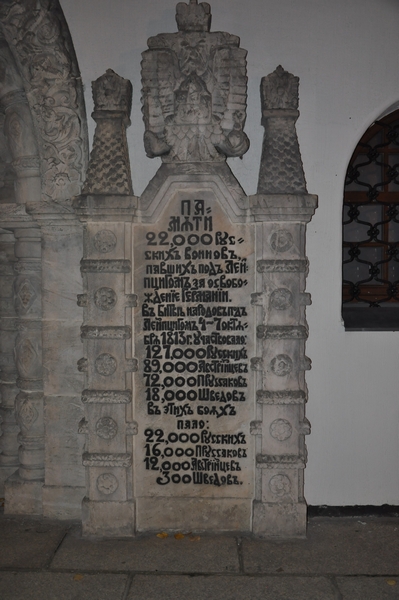 ПА=
МѦТИ
22,000 РУС=
СКИХЪ ВОИНОВЪ,
ПАВШИХЪ ПОДЪ ЛЕЙ=
ПЦИГОМЪ ЗА ОСВОБО=
ЖДЕНІЕ ГЕРМАНІИ.
ВЪ БИТВѢ НАРОДОВЪ ПОДЪ
ЛЕЙПЦИГОМЪ 4–7 ОКТЯБ=
РЯ 1813 Г. УЧАСТВОВАЛО:
127,000 РУССКИХЪ
89,000 АВСТРІЙЦЕВЪ
72,000 ПРУССАКОВЪ
18,000 ШВЕДОВЪ
ВЪ ЭТИХЪ БОЯХЪ
ПАЛО:
22,000 РУССКИХЪ
16,000 ПРУССАКОВЪ
12,000 АВСТРІЙЦЕВЪ
300 ШВЕДОВЪ.